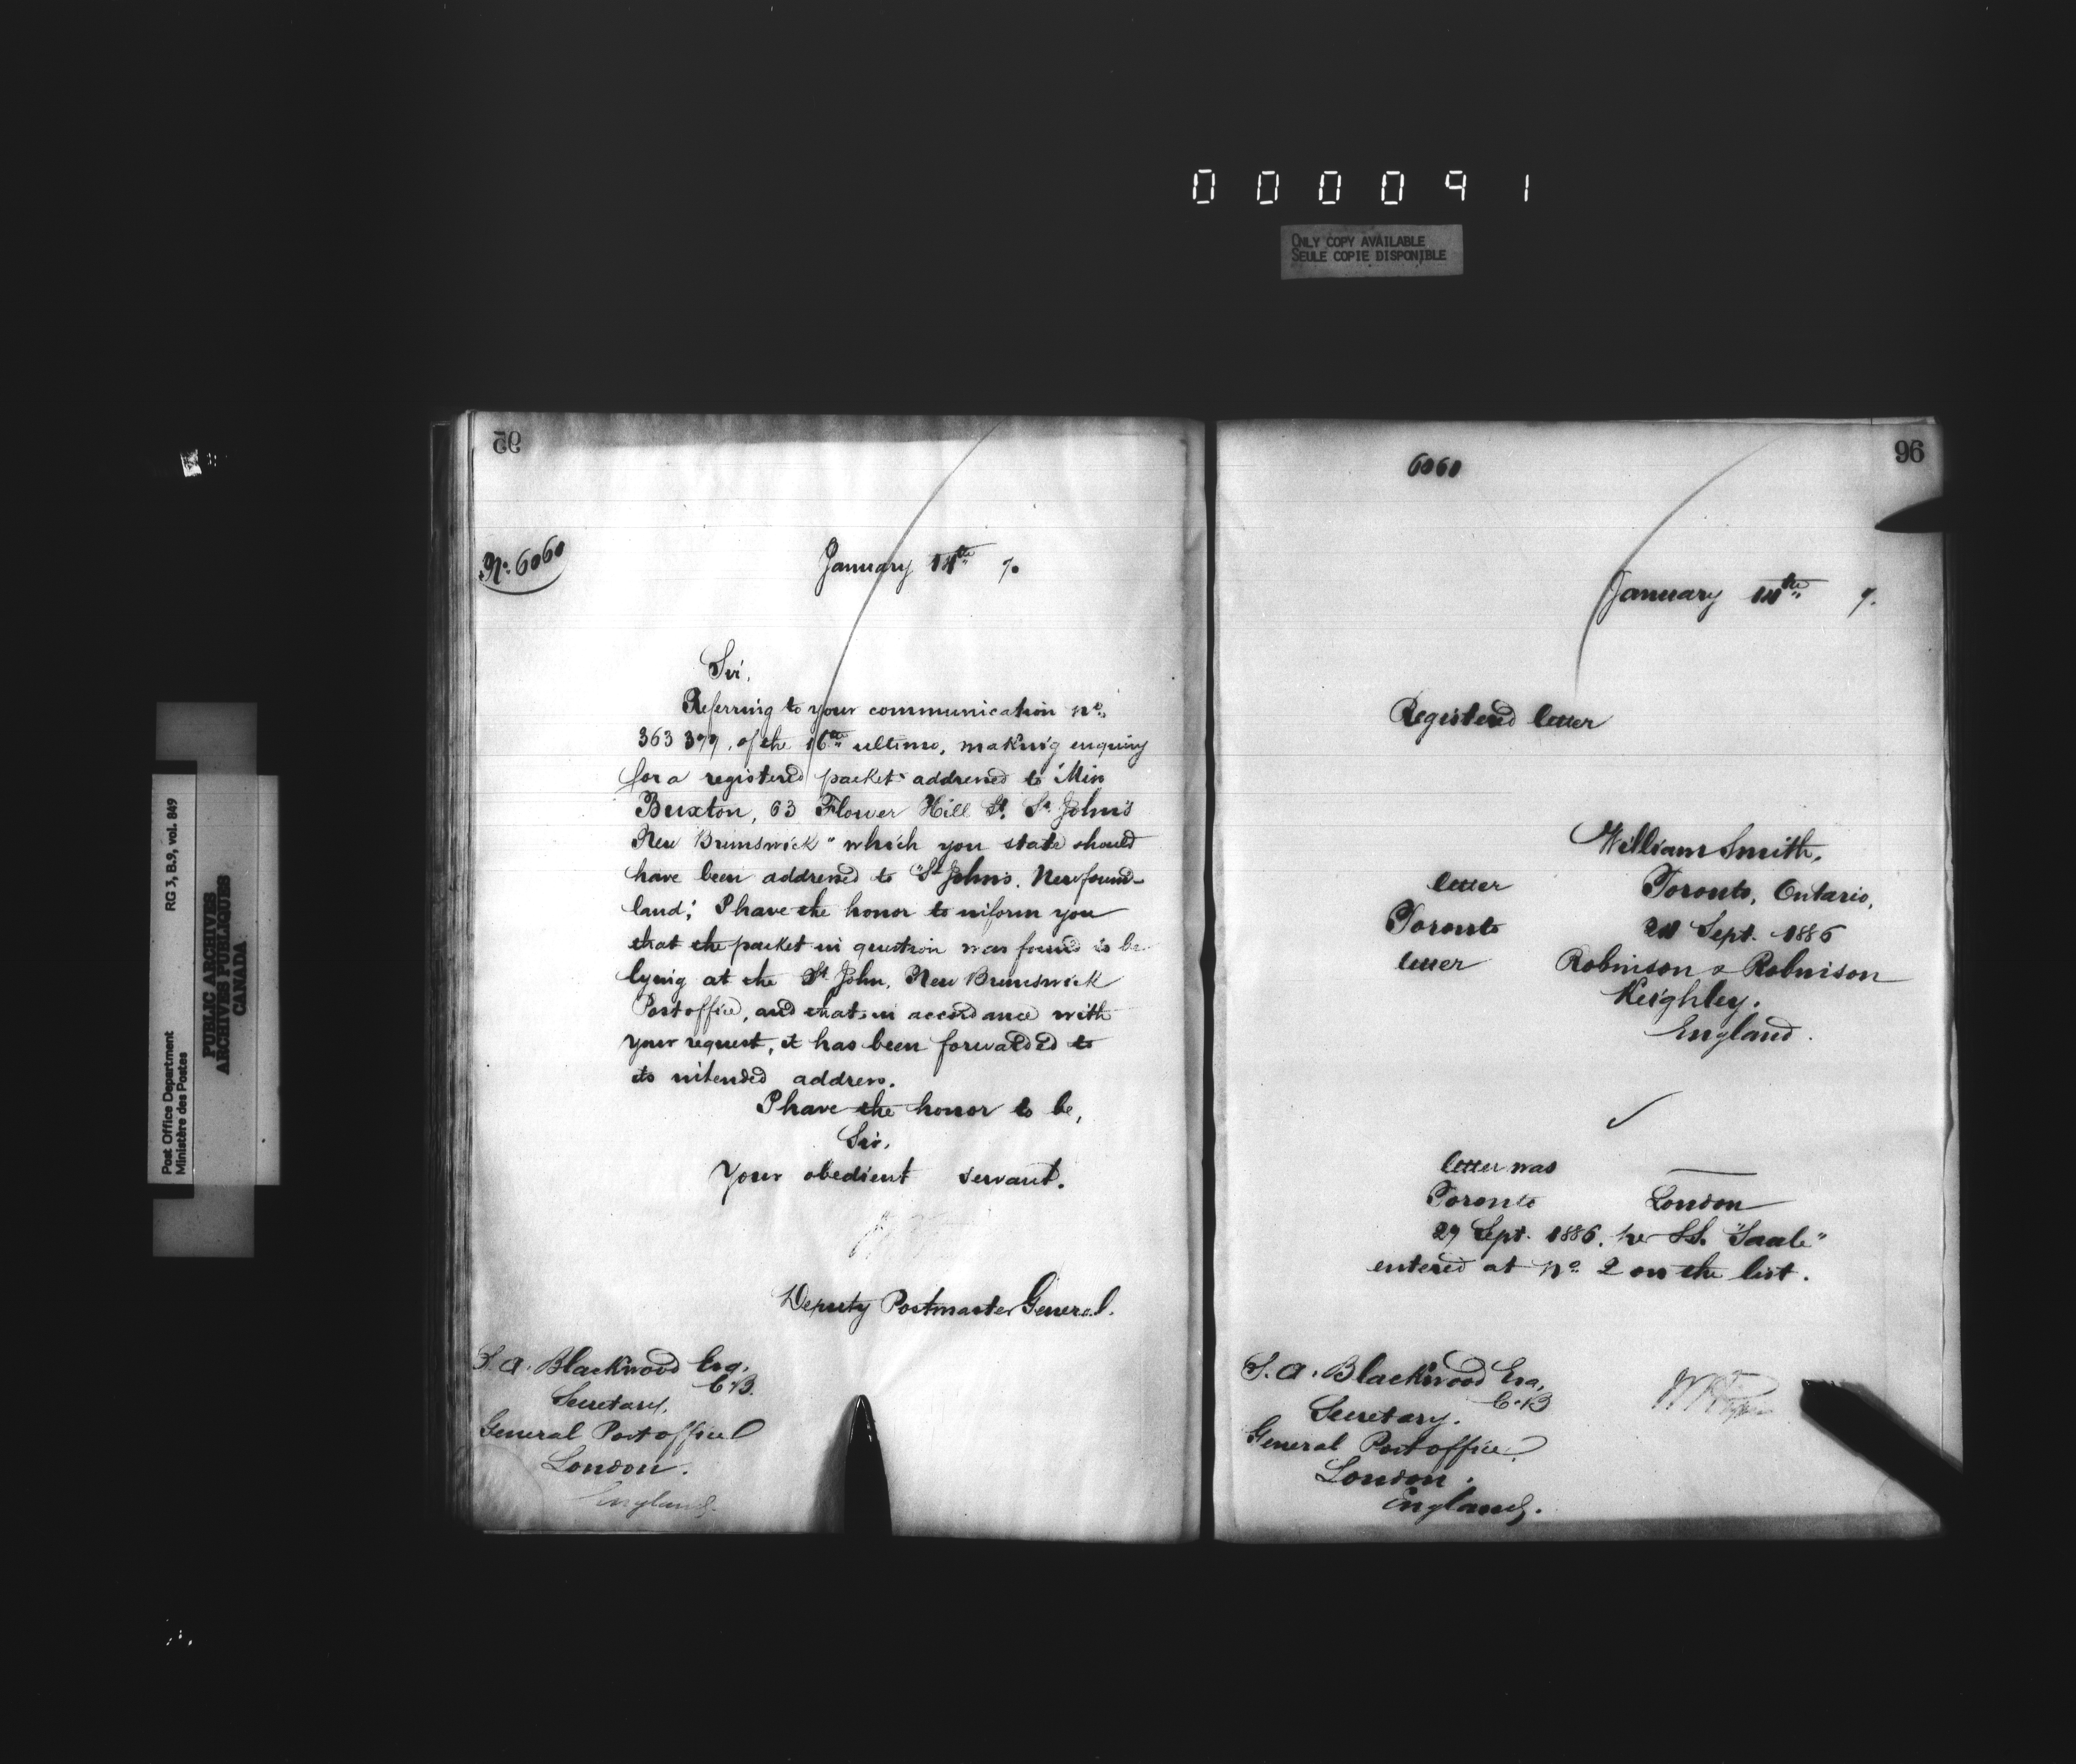 000091
ONLY COPY AVAILABLE
SEULE COPIE DISPONIBLE
Post Office Department
Ministère des Postes
RG 3, B.9, vol. 849
PUBLIC ARCHIVES
ARCHIVES PUBLIQUES
CANADA
95
No. 6060
January 14th 7.
Sir,
Referring to your communication No.
363 377, of the 16th ultimo, making enquiry
for a registered packet addressed to "Miss
Buxton, 63 Flower Hill St. St. John's
New Brunswick" which you state should
have been addressed to "St John's, Newfound-
land," I have the honor to inform you
that the packet in question was found to be
lying at the St John, New Brunswick
Post office, and that, in accordance with
your request, it has been forwarded to
its intended address.
I have the honor to be,
Sir,
Your obedient servant.
Deputy Postmaster General.
S. A. Blackwood Esq.
C.B.
Secretary,
General Post office
London.
England.
96
6060
January 14th 7.
Registered letter
William Smith,
letter Toronto, Ontario,
Toronto 24 Sept. 1886
letter Robinson & Robinson
Keighley.
England.
letter was
Toronto London
29 Sept. 1886. per S.S. "Saale"
entered at No. 2 on the list.
S. A. Blackwood Esq,
C.B
Secretary.
General Post office
London.
England.